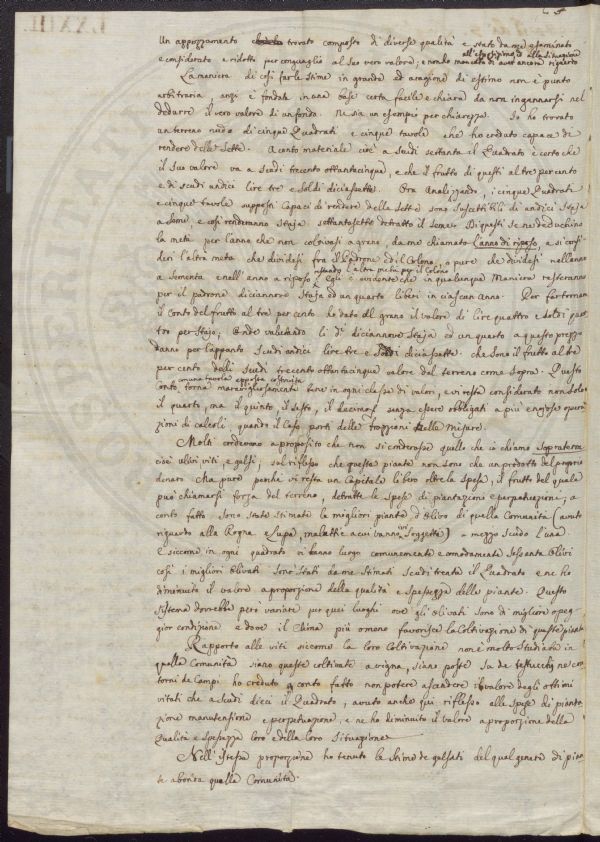 Un appezzamento trovato composto di diverse qualità è stato da me esaminato
all'esposizione e alla situazione
e considerato e ridotto per conguaglio al suo vero valore; e non ho mancato di aver ancora riguardo
La maniera di così far le stime in grande ed a ragione di estimo non è punto
arbitraria anzi è fondata in una base certa facile e chiara da non ingannarsi nel
dedurre il vero valore di un fondo. Ne sia un esempio per chiarezza. Io ho trovato
un terreno nudo di cinque Quadrati e cinque tavole che ho creduto capace di
rendere delle Sette. A conto materiale cioè a Scudi settanta il Quadrato è certo che
il suo valore va a scudi trecento ottantacinque, e che il frutto di questi al tre per cento
è di scudi undici lire tre e soldi diciassette. Ora Analizzando, i cinque Quadrati
e cinque tavole supposti capaci di rendere delle Sette sono suscettibili di undici Staja
a seme, e così renderanno Staja settantasette detratto il seme. Di questi se ne deduchino
la metà per l'anno che non coltivasi a grano, da me chiamato l'anno di riposo, e si consi-
deri l'altra metà che dividesi fra il Padrone ed il Colono, o pure che dividesi nell'anno
restando l'altra metà per il Colono
a sementa e nell'anno a riposo Egli è evidente che in qualunque Maniera resteranno
per il padrone diciannove Staja ed un quarto liberi in ciascun anno. Per far tornare
il Conto del frutto al tre per cento ho dato al grano il valore di lire quattro e soldi quat
tro per Stajo; Onde valutando li di diciannove Staja ed un quarto a questo prezzo
danno per l'appunto Scudi undici lire tre e Soldi diciassette che sono il frutto al tre
per cento degli Scudi trecento ottantacinque valore del terreno come sopra. Questo
con una tavola apposta costruita
conto torna maravigliosamente bene in ogni classe di valori, e vi resta considerato non solo
il quarto, ma il quinto, il sesto, il decimo senza essere obbligati a più engiose opera
zioni di calcoli, quando il caso porti delle frazzioni delle Misure.
Molti credevano a proposito che non si considerasse quello che io chiamo sopraterra
cioè ulivi viti, e gelsi, sul riflesso che queste piante non sono che un prodotto del proprio
denaro Ma pure perché vi resta un Capitale libero oltre la spesa, il frutto del quale
può chiamarsi forza del terreno, detratte le spese di piantazione e perpetuazione; a
conto fatto, sono state stimate le migliori piante d'Olivo di quella Comunità (avuto
riguardo alla Rogna e Lupa, malattie a cui vanno soggette) a mezzo scudo l'una.
E siccome in ogni quadrato vi hanno luogo comunemente e comodamente sessanta Olivi
così i migliori Olivati sono stati da me stimati scudi trenta il Quadrato e ne ho
diminuito il valore a proporzione della qualità e spessezza delle piante. Questo
sistema dovrebbe però variare per quei luoghi ove gli Olivati sono di migliore o peg
gior condizione e dove il Clima più o meno favorisce la Coltivazione di queste piante
Rapporto alle viti siccome la loro Coltivazione non è molto studiata in
quella Comunità siano queste coltivate a vigna, siano poste su da testucchi ne con
torni de Campi ho creduto a conto fatto non potere ascendere il valore degli ottimi
vitati che a scudi dieci il Quadrato, avuto anche qui riflesso alle spese di pianta
zione manutenzione e perpetuazione, e ne ho diminuito il valore a proporzione della
Qualità e spessezza loro e della loro situazione
Nell'istessa proporzione ho tenuto la stima de gelsati del qual genere di pian
te abonda quella Comunità.